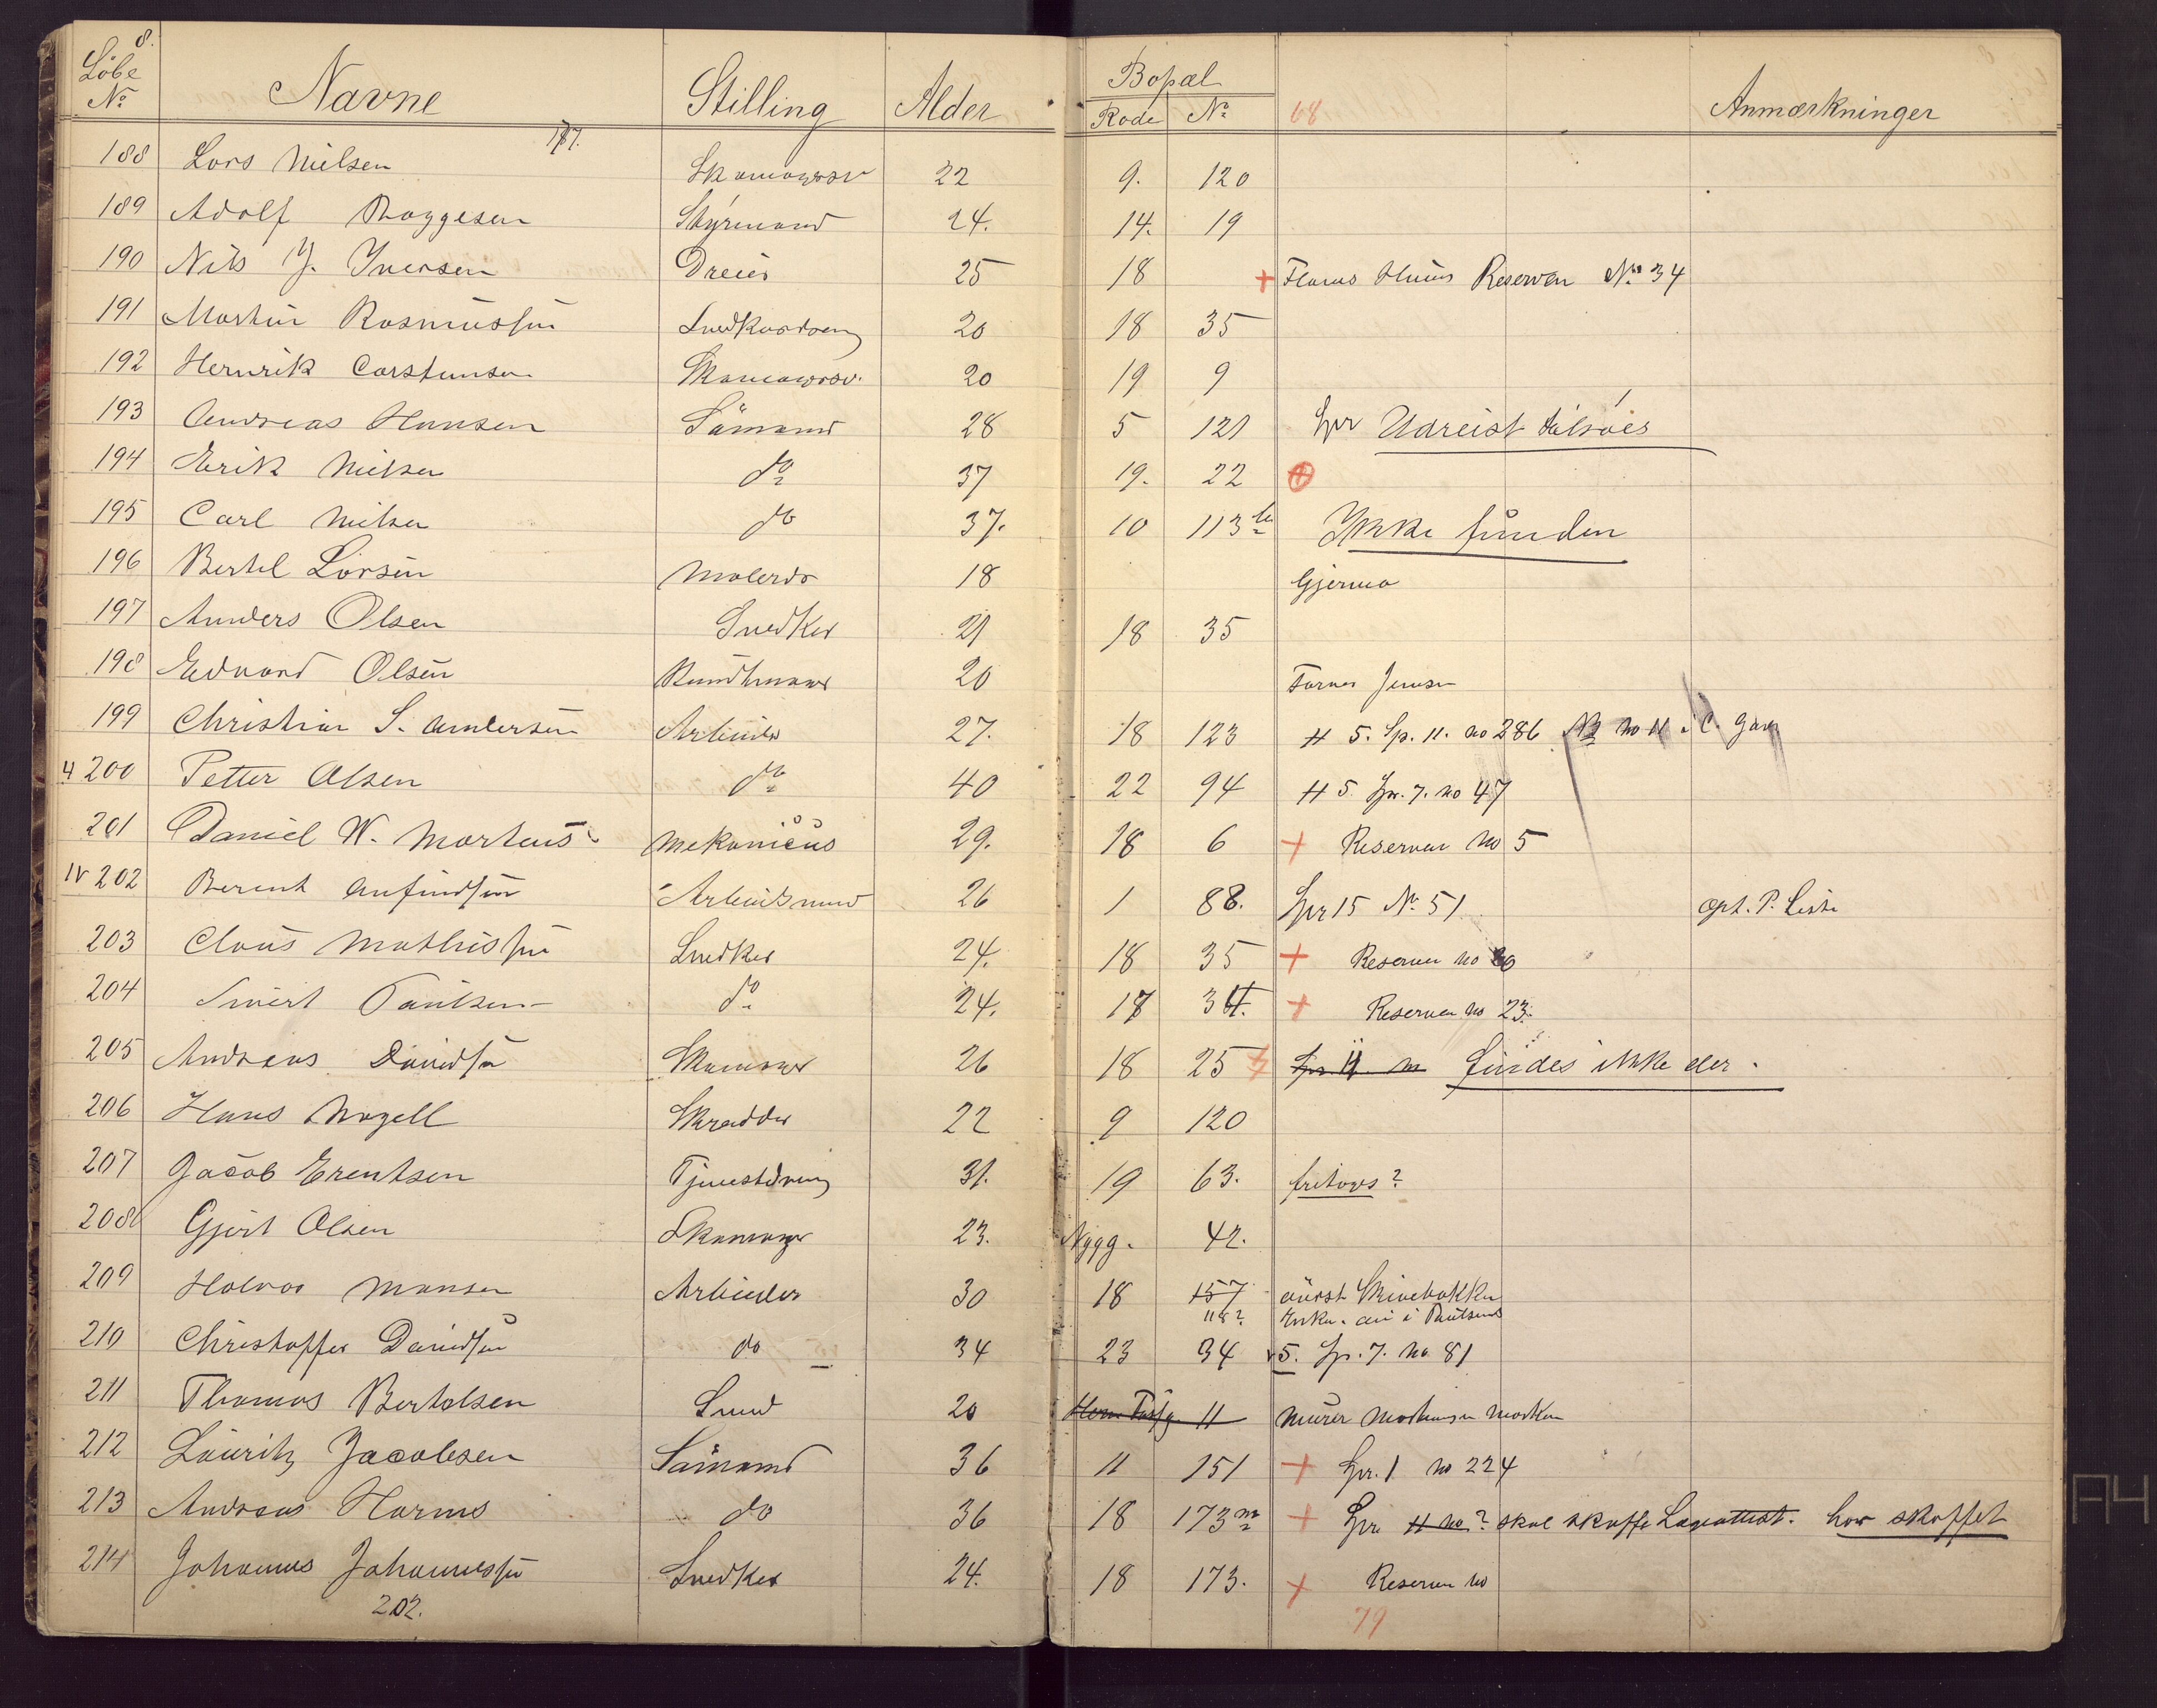 8.
Löbe No Navne Stilling Alder Bopæl Rode No 68 Anmærkninger
177.
188 Lars Nielsen Skomagersv 22 9. 120
189 Adolf Roggesen Styrmand 24. 14. 19
190 Nils J. Iversen Dreier 25 18 + Reserven No 34
191 Martin Rasmussen Snedkerdreng 20 18 35
192 Henrik Carstensen Skomagersv. 20 19 9
193 Andreas Hansen Sömand 28 5 121 Spr Udreist tilsöes
194 Erik Nielsen do 37 19. 22 +
195 Carl Nielsen do 37. 10 113 Ikke funden
196 Bertel Larsen Malerdr 18 Gjerma
197 Anders Olsen Snedker 21 18 35
198 Edvard Olsen Bundtmager 20 Farver Jensen
199 Christian S. Andersen Arbeider 27. 18 123 H 5. Sp. 11. no 286 No 11 i C. Gaden
4 200 Petter Olsen do 40 22 94 H 5. Spr. 7. no 47
201 Daniel W. Martens Mekanicus 29. 18 6 + Reserven No 5
IV 202 Berent Anfindsen Arbeidsmand 26 1 88. Spr 15 No 51 opt. P. Liste
203 Claus Mathissen Snedker 24. 18 35 + Reserven no 20
204 Sivert Paulsen do 24. 17 34. + Reserven no 23.
205 Andreas Davidsen Skomager 26 18 25 Spr. 11 no findes ikke der.
206 Hans Mogell Skrædder 22 9 120
207 Jacob Erentsen Tjenestdreng 31. 19 63. fritages?
208 Gjert Olsen Skomager 23. Nygg. 42.
209 Halvor Monsen Arbeider 30 18 157 överst Skivebakken
118? Enke. i Paulsens
210 Christoffer Davidsen do 34 23 94 5. Sp. 7. no 81
211 Thomas Bertelsen Smed 20 11 Murer Mortensen Marken
212 Lauritz Jacobsen Sömand 36 11 151 + Spr. 1 no 224
213 Andreas Harms do 36 18 173 + Spr 11 no? skal skaffe Lægeattest. har skaffet
214 Johannes Johannessen Snedker 24. 18 173. + Reserven no
202. 79